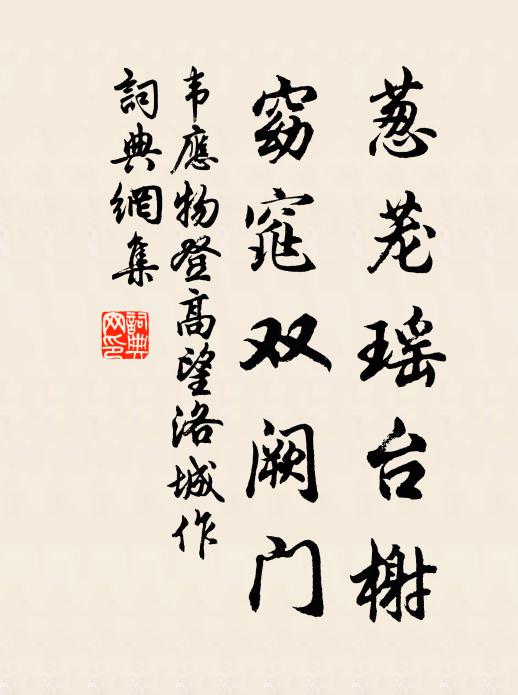 葱茏瑶台榭
窈窕双阙门
韦應物登高望洛城作
詞典網集
詞典网印